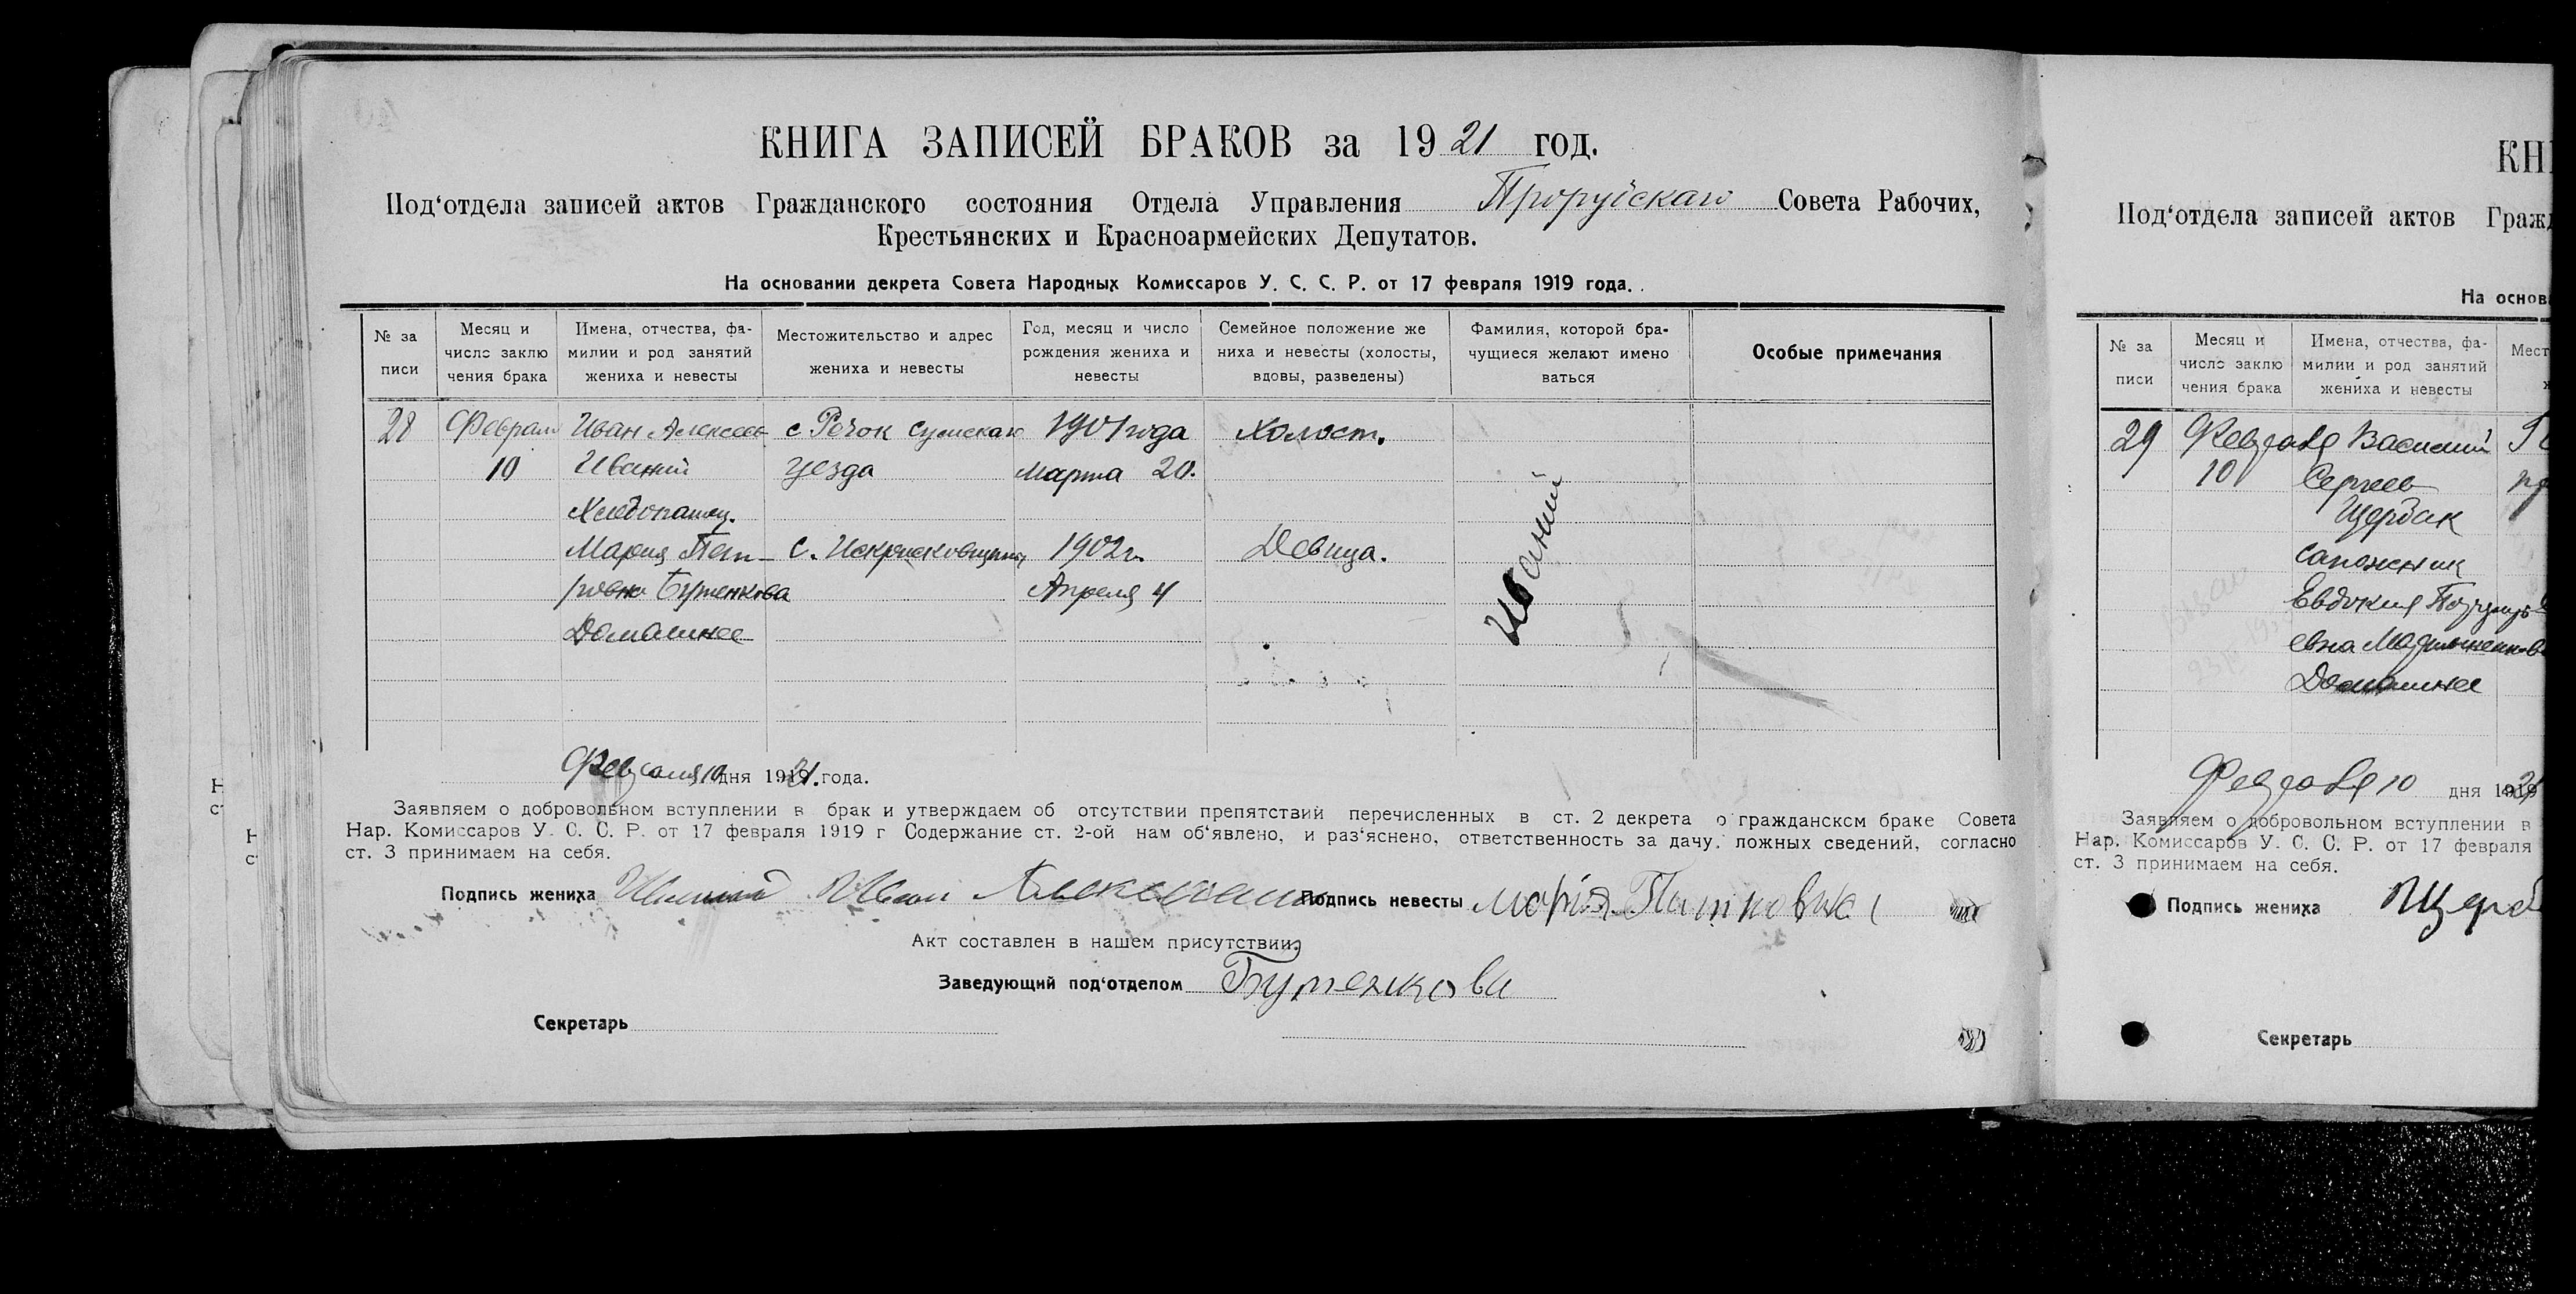 КНИГА ЗАПИСЕЙ БРАКОВ за 1921 год.
Под‘отдела записей актов Гражданского состояния Отдела Управления Проруйскаго Совета Рабочих,
Крестьянских и Красноармейских Депутатов.
На основании декрета Совета Народных Комиссаров У. С. С. Р. от 17 февраля 1919 года.
№ за
писи
Месяц и
число заклю
чения брака
Имена, отчества, фа-
милии и род занятий
жениха и невесты
Местожительство и адрес
жениха и невесты
Год, месяц и число
рождения жениха и
невесты
Семейное положение же
ниха и невесты (холосты,
вдовы, разведены)
Фамилия, которой бра-
чущиеся желают имено
ваться
Особые примечания
28 Феврал Иван Алексеев с Речок Сумскаго 1901 года Холост.
10 Иваний уезда марта 20.
Хлебопашец.
Мария Пет- с. Искрисковщина 1902 г. Девица.
ровна Бутенкова Апреля 4
Домашнее
Иваний
Февраля 10 дня 1921 года.
Заявляем о добровольном вступлении в брак и утверждаем об отсутствии препятствий перечисленных в ст. 2 декрета о гражданском браке Совета
Нар. Комиссаров У. С. С. Р. от 17 февраля 1919 г Содержание ст. 2-ой нам об‘явлено, и раз‘яснено, ответственность за дачу, ложных сведений, согласно
ст. 3 принимаем на себя.
Подпись жениха Иваний Иван Подпись невесты Марія
Акт составлен в нашем присутствии
Заведующий под‘отделом Бутенкова
Секретарь
КН
Под‘отдела записей актов Граж
На основ
№ за
писи
Месяц и
число заклю
чения брака
Имена, отчества, фа-
милии и род занятий
жениха и невесты
Мест
29 Февраля Василий
10 Сергеев
Щербак
сапожник
Евдокия
евна
Домашнее
Февраля 10 дня 1921
Заявляем о добровольном вступлении в
Нар. Комиссаров У. С. С. Р. от 17 февраля
ст. 3 принимаем на себя.
Подпись жениха Щерб
Секретарь